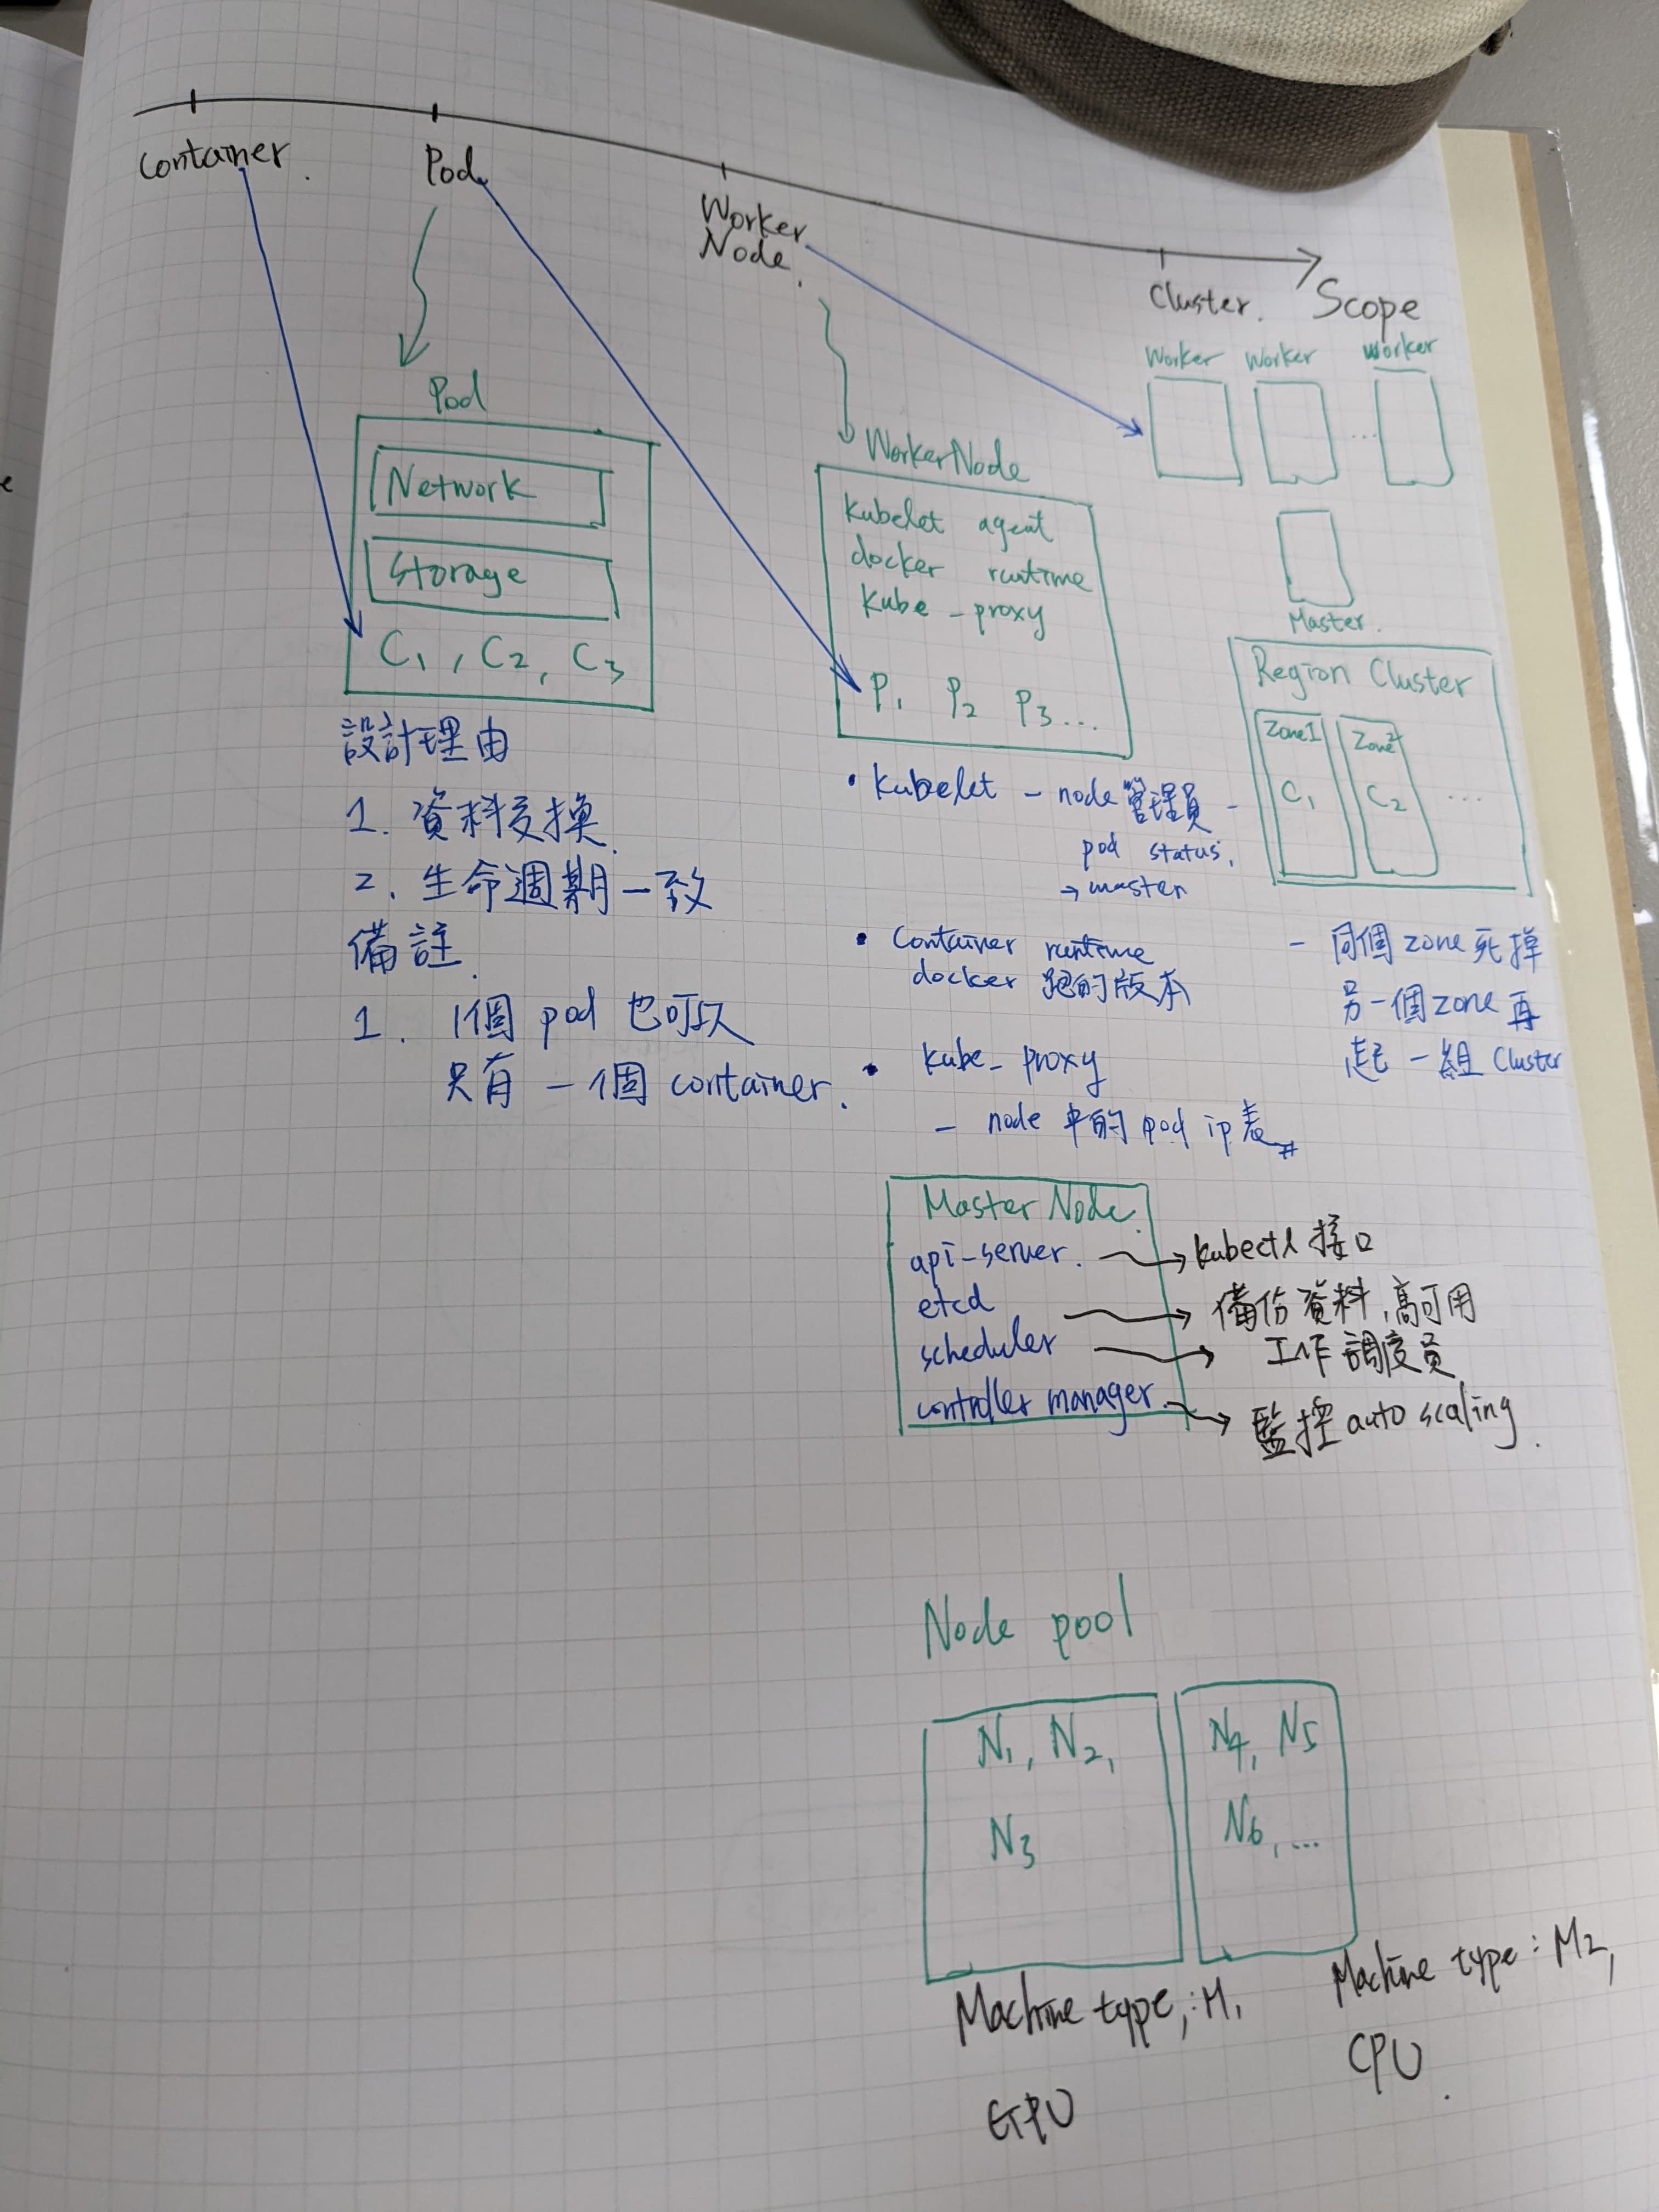 Container.
Pod
Worker
Node.
Cluster.
Scope
Pod
Network
Storage
C1, C2, C3
設計理由
1. 資料交換
2. 生命週期一致
備註
1. 1個 pod 也可以
只有一個 container.
WorkerNode
kubelet agent
docker runtime
kube-proxy
P1 P2 P3...
• kubelet - node 管理員 -
pod status,
→ master
• Container runtime
docker 跑的版本
• kube-proxy
- node 中的 pod ip 表 #
Worker Worker Worker
...
Master.
Region Cluster
Zone1 Zone2
C1 C2 ...
- 同個 zone 死掉
另一個 zone 再
起一組 Cluster
Master Node
api-server. → kubectl 接口
etcd → 備份資料, 高可用
scheduler → 工作調度員
controller manager. → 監控 auto scaling.
Node pool
N1, N2,
N3
N4, N5
N6, ...
Machine type : M1
GPU
Machine type : M2,
CPU.